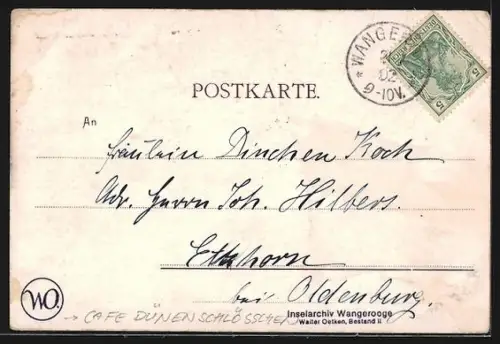 POSTKARTE.
* WANGE
02
9-10V.
5
5
An
Fräulein Dinchen Koch
Adr. Herrn Joh. Hilbers.
Etzhorn
bei Oldenburg.
WO.
→ CAFE DÜNENSCHLÖSSCHEN
Inselarchiv Wangerooge
Walter Oetken, Bestand II